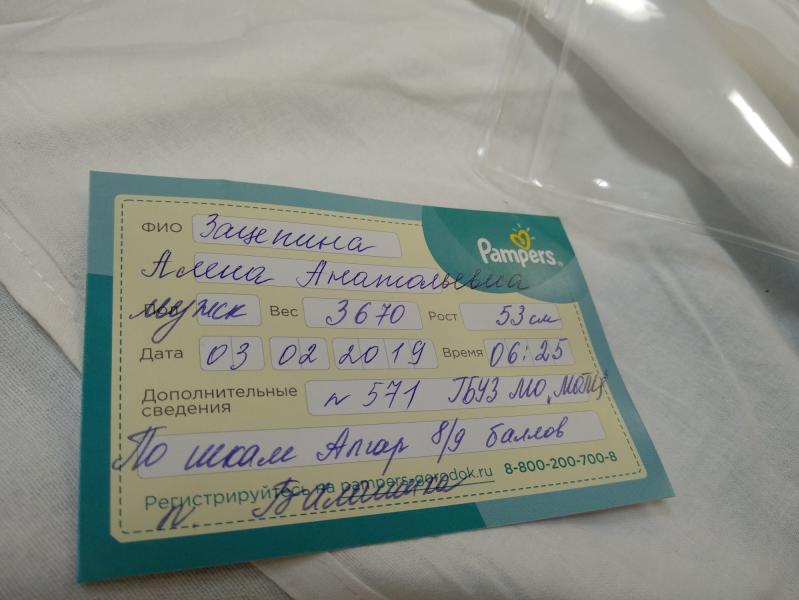 ФИО Зацепина
Pampers
Алена Анатольевна
мужск Вес 3670 Рост 53 см
Дата 03 02 2019 Время 06:25
Дополнительные сведения № 571 ГБУЗ МО „МОПЦ"
По шкале Апгар 8/9 баллов
Регистрируйтесь на pampers-gorodok.ru 8-800-200-700-8